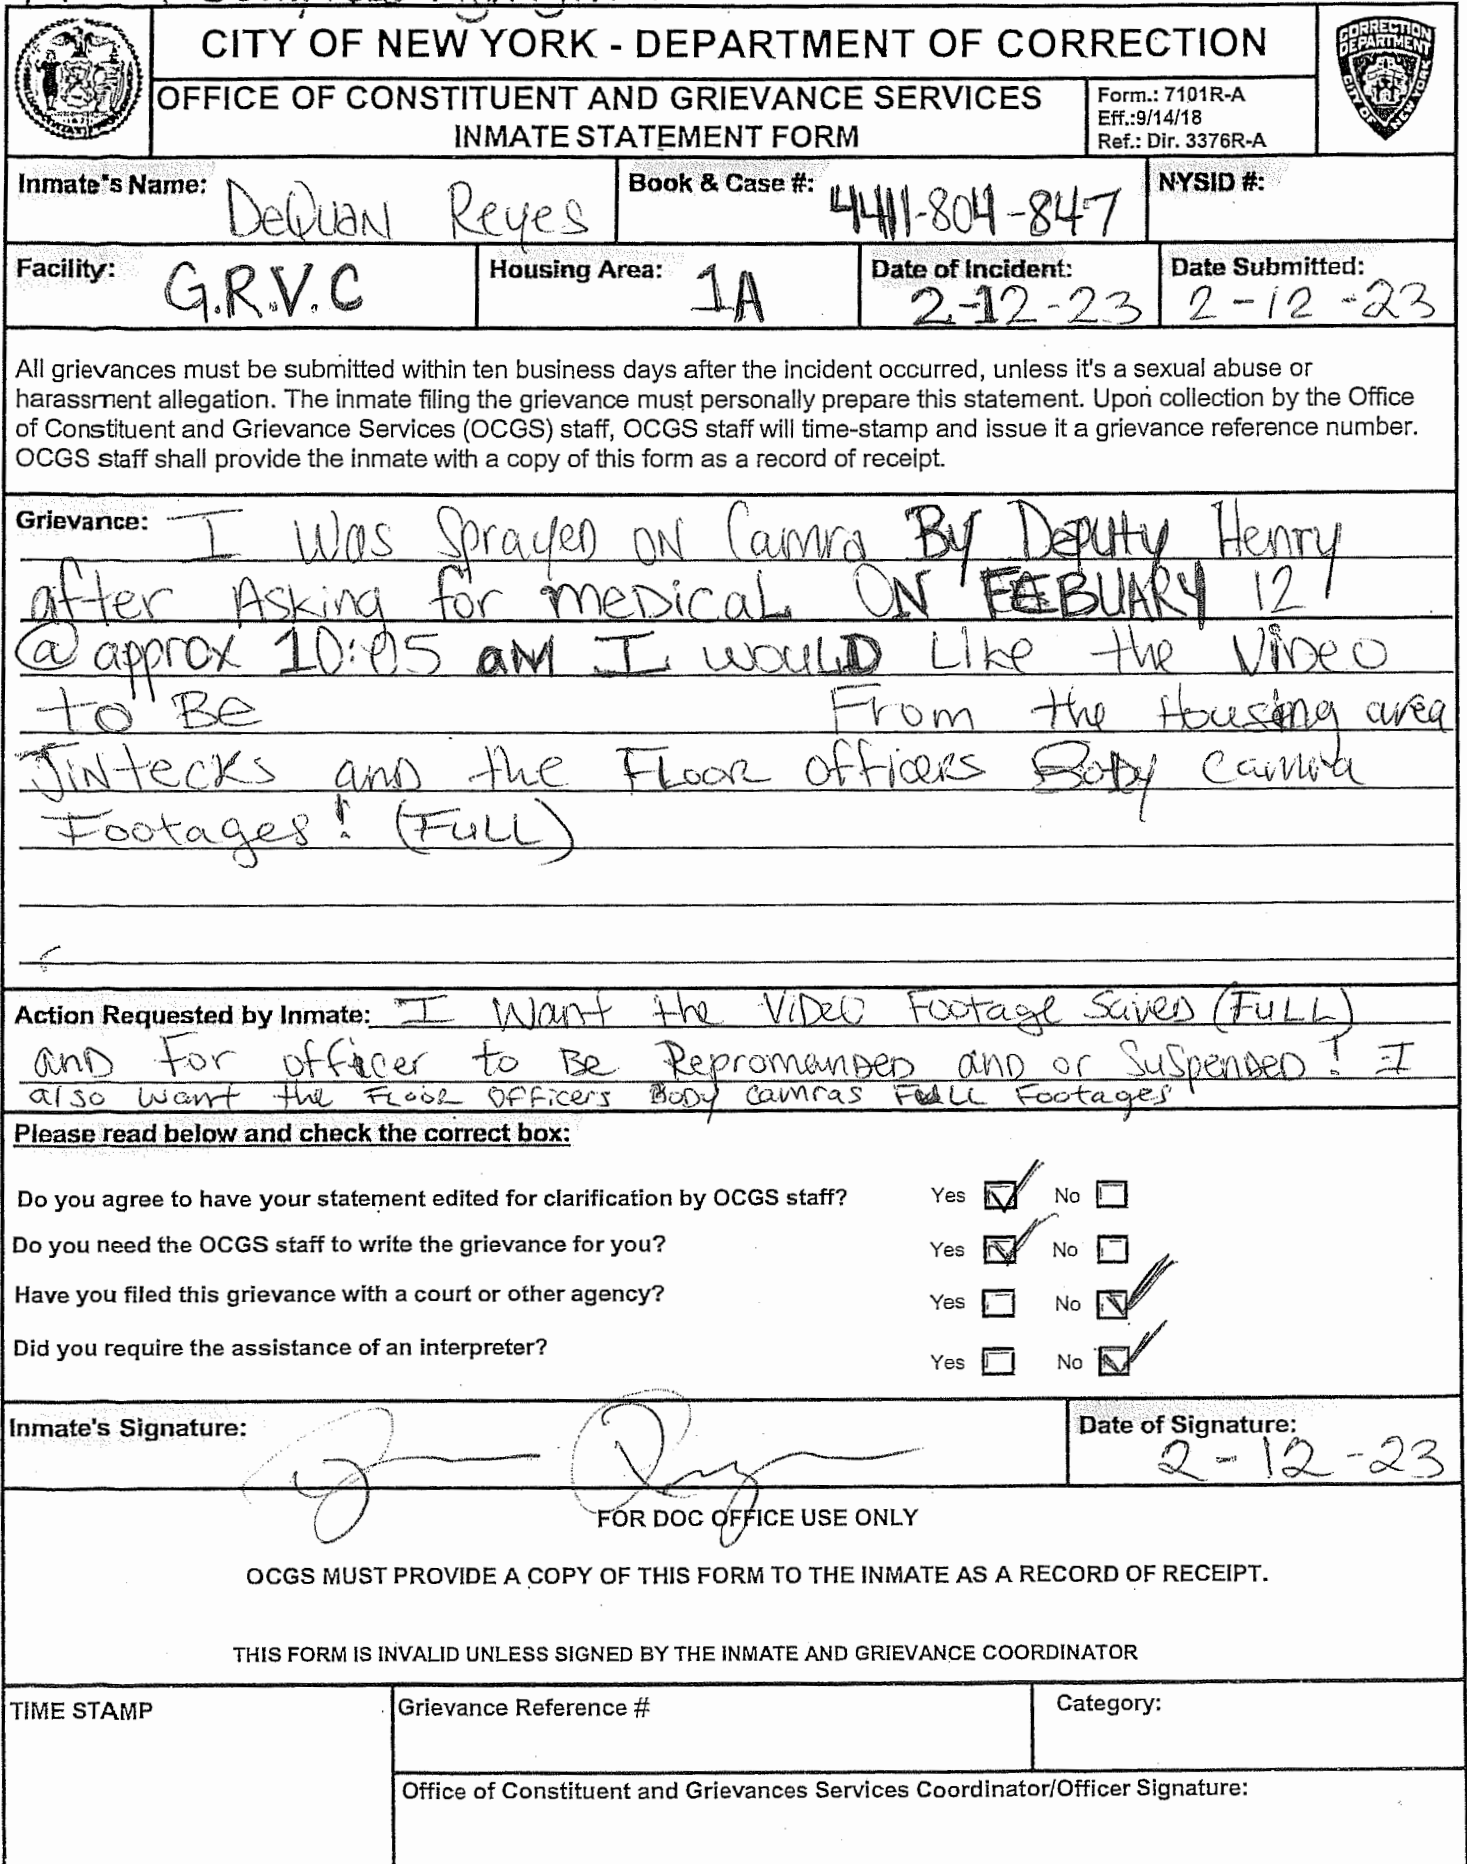 CITY OF NEW YORK - DEPARTMENT OF CORRECTION
OFFICE OF CONSTITUENT AND GRIEVANCE SERVICES
INMATE STATEMENT FORM
Form.: 7101R-A
Eff.:9/14/18
Ref.: Dir. 3376R-A
CORRECTION
DEPARTMENT
CITY OF NEW YORK
Inmate's Name: DeQuan Reyes
Book & Case #: 4411-804-847
NYSID #:
Facility: G.R.V.C
Housing Area: 1A
Date of Incident: 2-12-23
Date Submitted: 2-12-23
All grievances must be submitted within ten business days after the incident occurred, unless it's a sexual abuse or
harassment allegation. The inmate filing the grievance must personally prepare this statement. Upon collection by the Office
of Constituent and Grievance Services (OCGS) staff, OCGS staff will time-stamp and issue it a grievance reference number.
OCGS staff shall provide the inmate with a copy of this form as a record of receipt.
Grievance: I Was Sprayed ON Camra By Deputy Henry
after Asking for medical ON FEBUARY 12
@ approx 10:05 aM I would Like the Video
to Be From the Housing area
Jintecks and the Floor officers Body Camra
Footages! (FULL)
Action Requested by Inmate: I Want the Video Footage Saved (FULL)
and For officer to Be Repromanded and or Suspended! I
also want the Floor officers Body camras Full Footages
Please read below and check the correct box:
Do you agree to have your statement edited for clarification by OCGS staff? Yes No
Do you need the OCGS staff to write the grievance for you? Yes No
Have you filed this grievance with a court or other agency? Yes No
Did you require the assistance of an interpreter? Yes No
Inmate's Signature:
Date of Signature: 2-12-23
FOR DOC OFFICE USE ONLY
OCGS MUST PROVIDE A COPY OF THIS FORM TO THE INMATE AS A RECORD OF RECEIPT.
THIS FORM IS INVALID UNLESS SIGNED BY THE INMATE AND GRIEVANCE COORDINATOR
TIME STAMP
Grievance Reference #
Category:
Office of Constituent and Grievances Services Coordinator/Officer Signature: